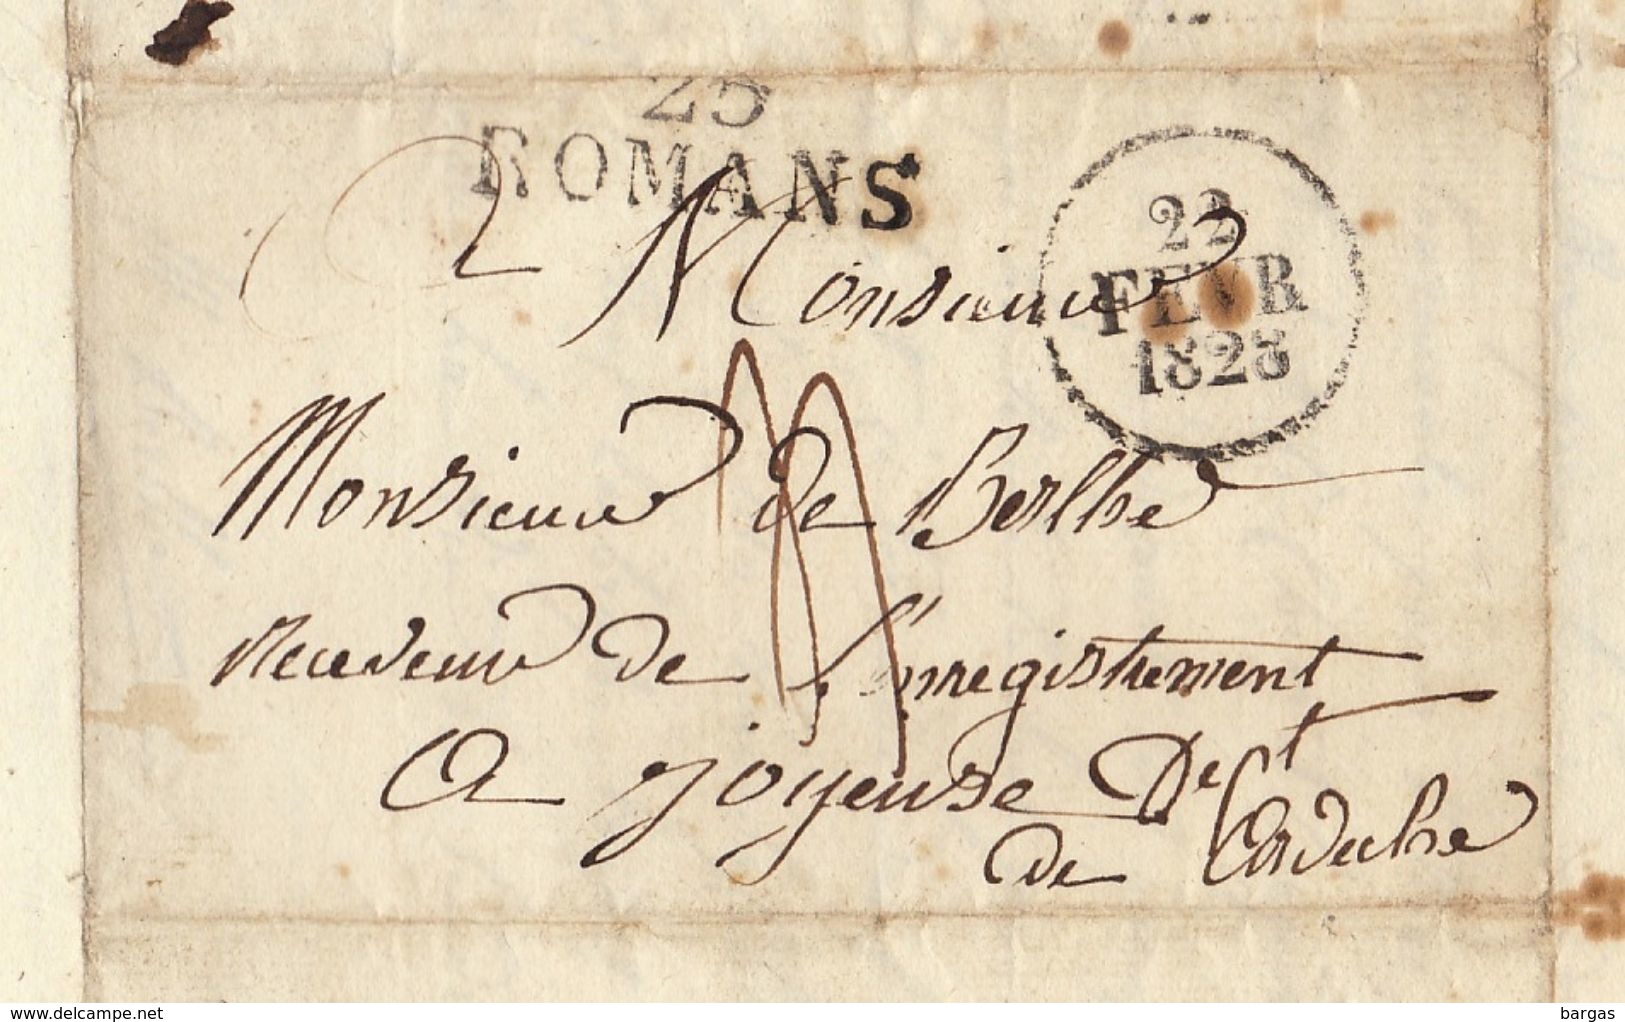 25
ROMANS
22
FEVR
1828
A Monsieur
Monsieur de Berthe
Receveur de l'enregistrement
a joyeuse Det
de Lardeche
www.delcampe.net
bargas